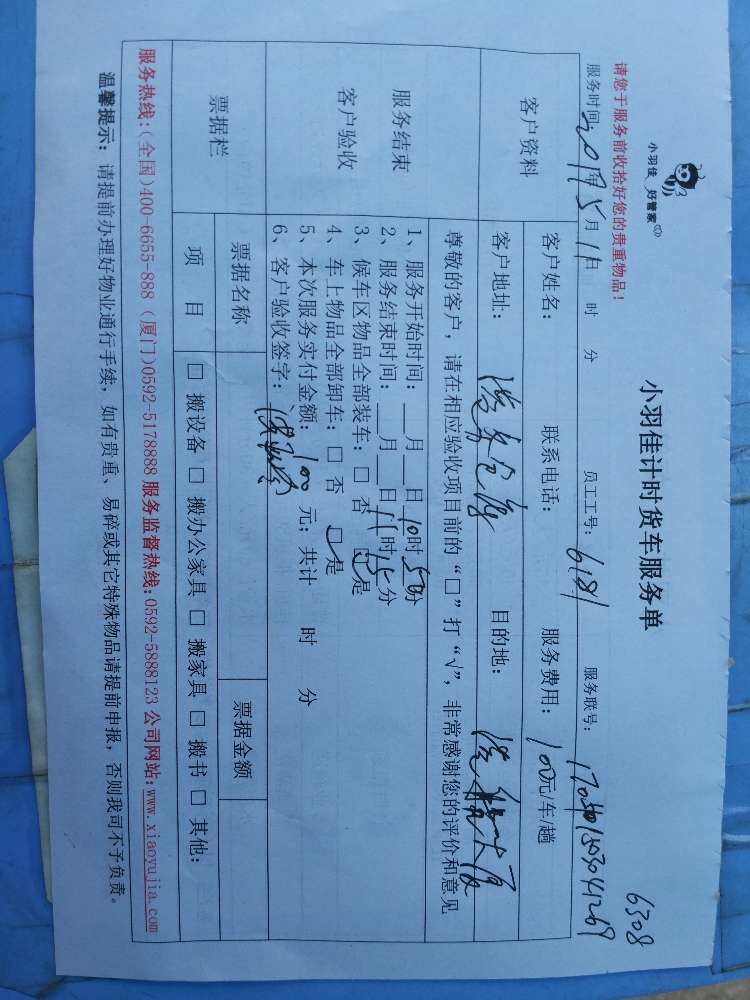 小羽佳 好管家
小羽佳计时货车服务单
6308
请您于服务前收拾好您的贵重物品！
服务时间：2019年5月11日 时 分 员工工号：6181 服务联号：
客户资料
客户姓名： 联系电话： 服务费用：100元/车/趟
客户地址： 目的地：
服务结束
客户验收
尊敬的客户，请在相应验收项目前的“□”打“√”，非常感谢您的评价和意见
1、服务开始时间：__月__日10时50分
2、服务结束时间：__月__日11时15分
3、候车区物品全部装车：□ 否 □是
4、车上物品全部卸车：□ 否 □是
5、本次服务实付金额：100 元；共计 时 分
6、客户验收签字：
票据栏
票据名称 票据金额
项 目 □ 搬设备 □ 搬办公家具 □ 搬家具 □ 搬书 □ 其他：
服务热线：(全国)400-6655-888 (厦门)0592-5178888 服务监督热线：0592-5888123 公司网站：www.xiaoyujia.com
温馨提示：请提前办理好物业通行手续，如有贵重、易碎或其它特殊物品请提前申报，否则我司不予负责。